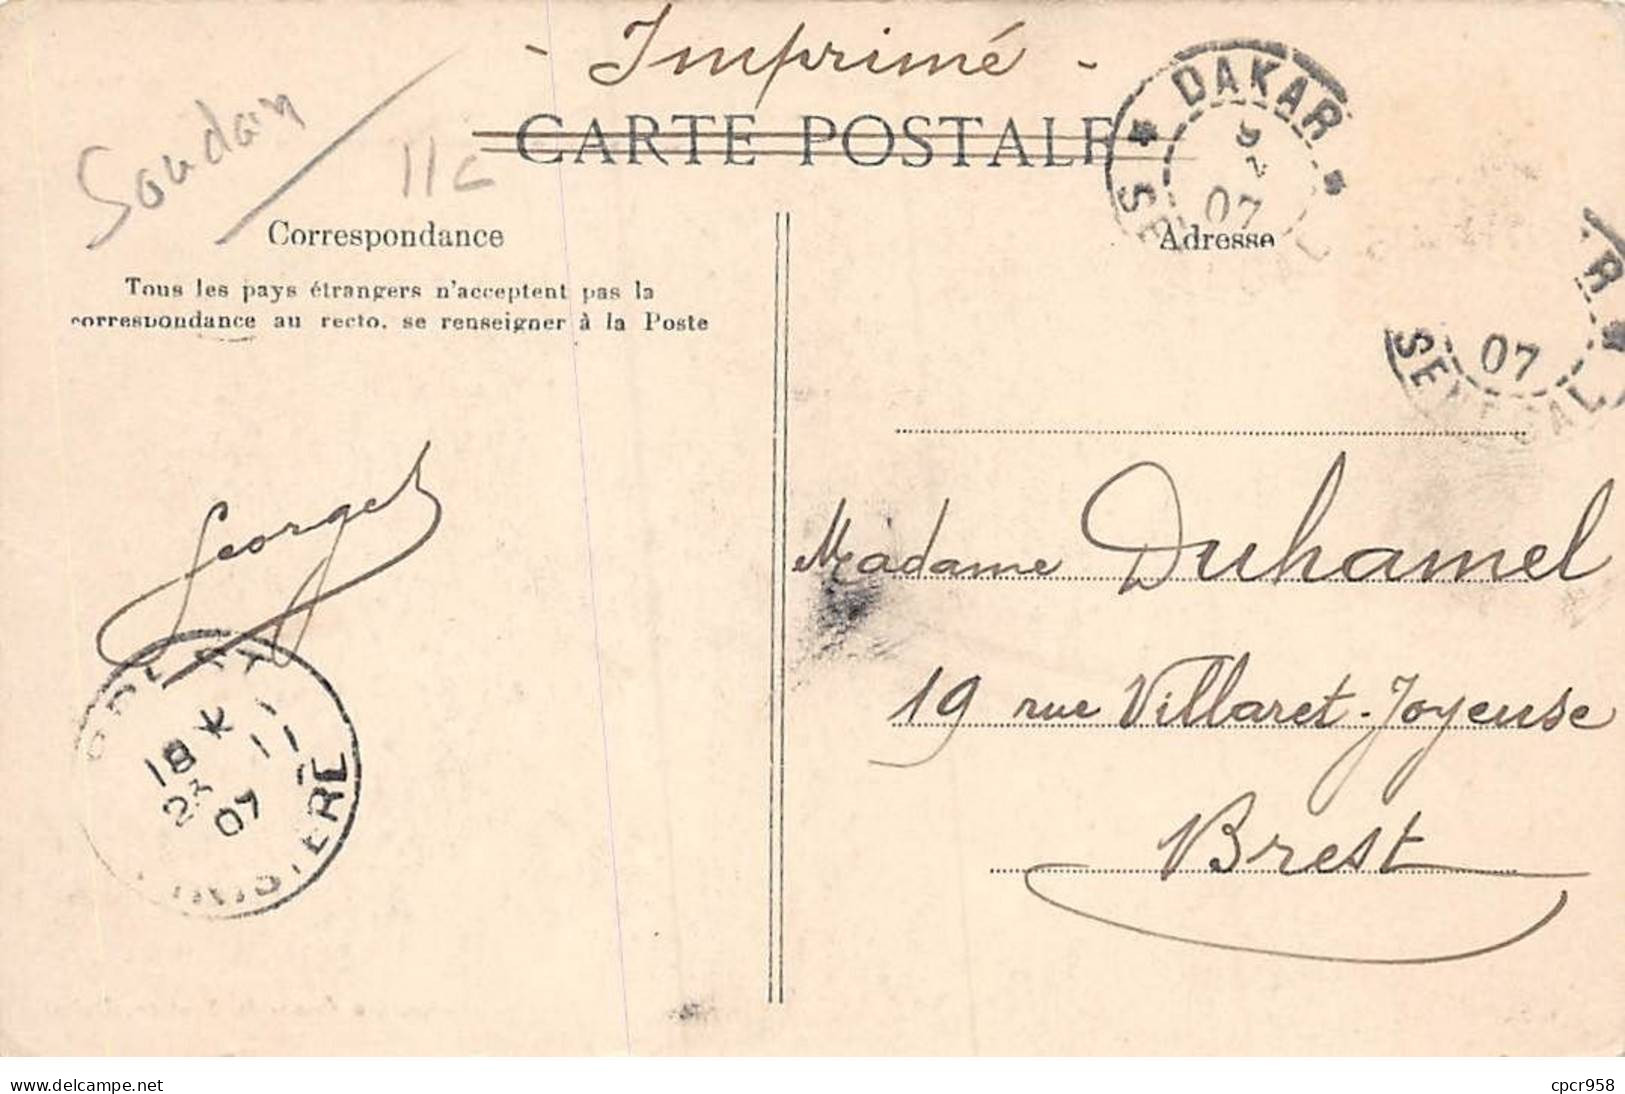 - Imprimé -
Soudan
11c
CARTE POSTALE
DAKAR
07
SENEGAL
Correspondance
Adresse
Tous les pays étrangers n'acceptent pas la
correspondance au recto, se renseigner à la Poste
07
SENEGAL
Georges
Madame Duhamel
19 rue Villaret-Joyeuse
Brest
BREST
18 * 
23 11
07
FINISTERE
www.delcampe.net
cpcr958